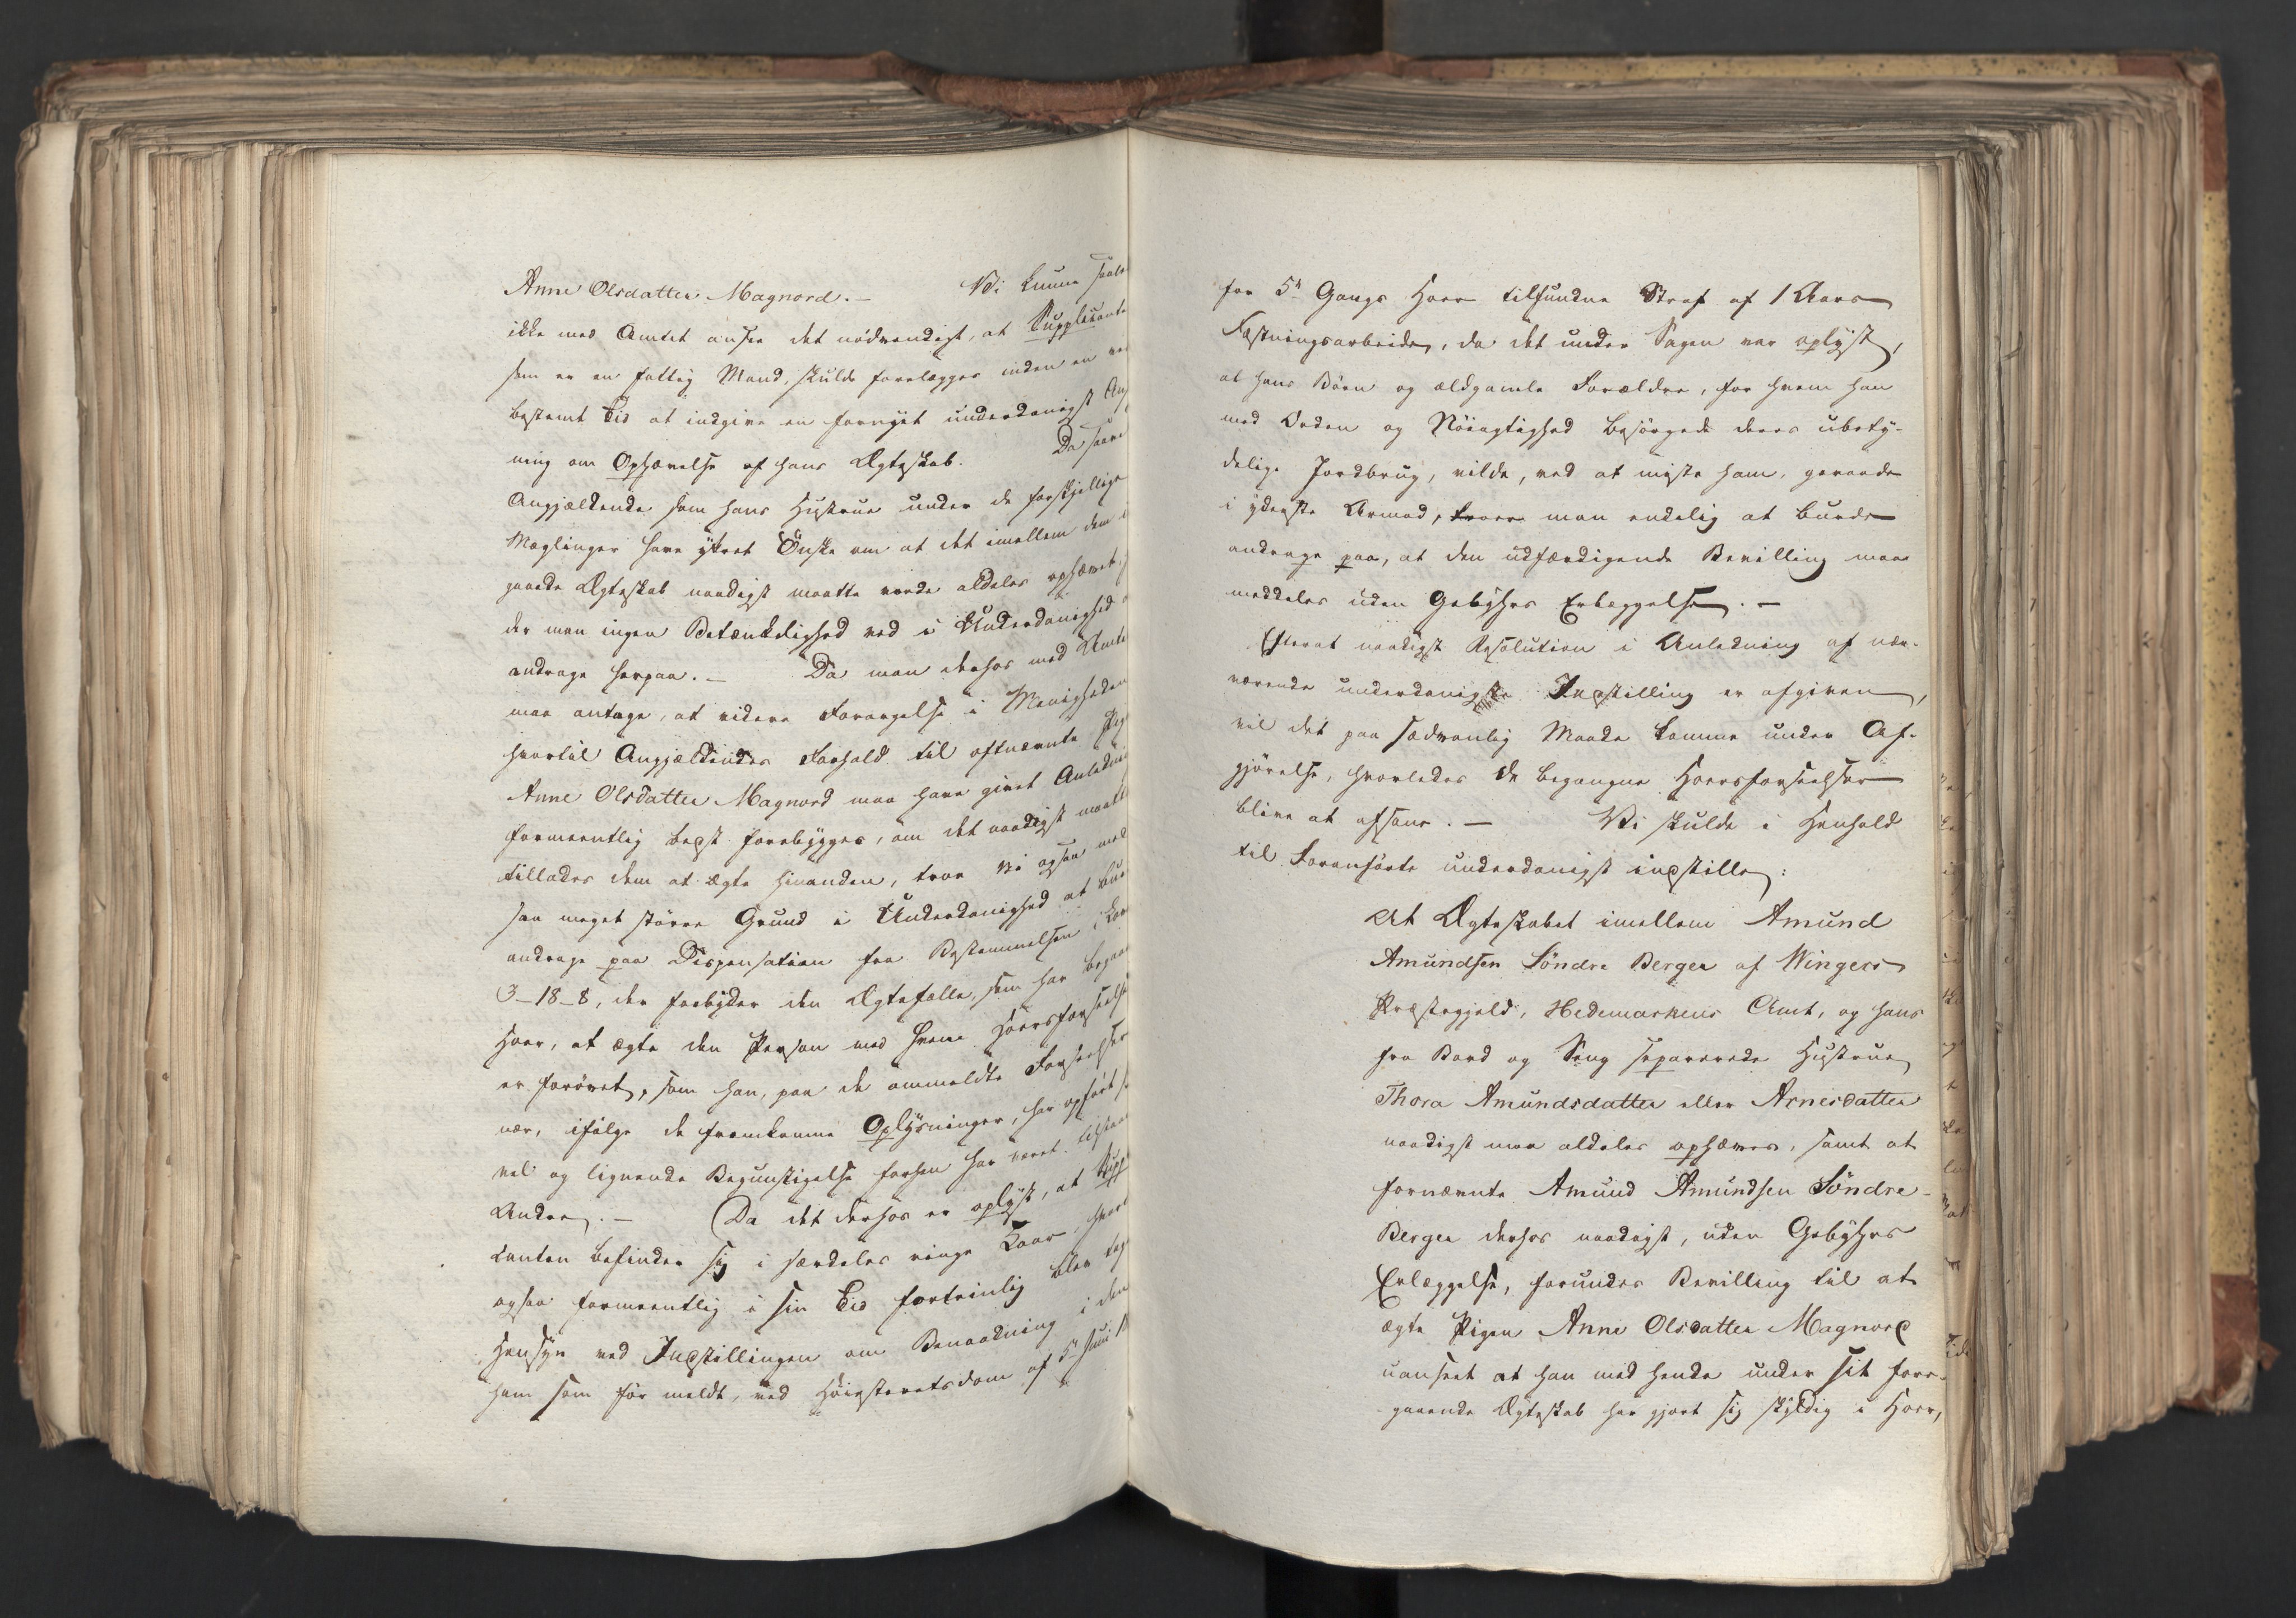 Anne Olsdatter Magnord. — Vi kunne
ikke med Amtet ansee det nødvendigt, at Supplicante
som er en fattig Mand, skulde forelægges inden en
bestemt Tid at indgive en fornyet underdanigst An
ning om Ophævelse af hans Ægteskab. Da saave
Angjældende som hans Hustrue under de forskjellige
Mæglinger have yttret Ønske om at det imellem dem
gaaede Ægteskab naadigst maatte vorde aldeles ophævet,
der man ingen Betænkelighed ved i Underdanighed
andrage herpaa. — Da man derhos med Amte
maa antage, at videre Forargelse i Menigheden
hvortil Angjældendes Forhold til oftnævnte Pige
Anne Olsdatter Magnord maa have givet Anledni
formeentlig best forebygges, om det naadigst maatte
tillades dem at ægte hinanden, troe vi ogsaa med
saa meget større Grund i Underdanighed at bu
andrage paa Dispensation fra Bestemmelsen i Lov
3–18–8, der forbyder den Ægtefælle, som har begaa
Hoer, at ægte den Person med hvem Hoersforseelse
er forøvet, som han, paa de ommeldte Forseelser
nær, ifølge de fremkomne Oplysninger, har opført s
vel og lignende Begunstigelse forhen har været tilstaae
Andre. — Da det derhos er oplyst, at Suppl
kanten befinder sig i særdeles ringe Kaar, hvor
ogsaa formeentlig i sin Tid fortrinlig blev tag
Hensyn ved Indstillingen om Benaadning i den
ham som før meldt, ved Høiesteretsdom af 5te Juni 1
for 5te Gangs Hoer tilfundne Straf af 1 Aars
Fæstningsarbeide, da det under Sagen var oplyst,
at hans Børn og ældgamle Forældre, for hvem han
med Orden og Nøiagtighed besørgede deres ubety-
delige Jordbrug, vilde, ved at miste ham, geraade
i yderste Armod, troer man endelig at burde
andrage paa, at den udfærdigende Bevilling maa
meddeles uden Gebyhrs Erlæggelse. —
Efterat naadigst Resolution i Anledning af nær-
værende underdanigste Indstilling er afgiven,
vil det paa sædvanlig Maade komme under Af-
gjørelse, hvorledes de begangne Hoersforseelser
blive at afsone. — Vi skulde i Henhold
til Foranførte underdanigst indstille:
At Ægteskabet imellem Amund
Amundsen Søndre Berger af Wingers
Præstegjeld, Hedemarkens Amt, og hans
fra Bord og Seng separerede Hustrue
Thora Amundsdatter eller Arnesdatter
naadigst maa aldeles ophæves, samt at
fornævnte Amund Amundsen Søndre-
Berger derhos naadigst, uden Gebyhrs
Erlæggelse, forundes Bevilling til at
ægte Pigen Anne Olsdatter Magnord
uanseet at han med hende under sit fore-
gaaende Ægteskab har gjort sig skyldig i Hoer,